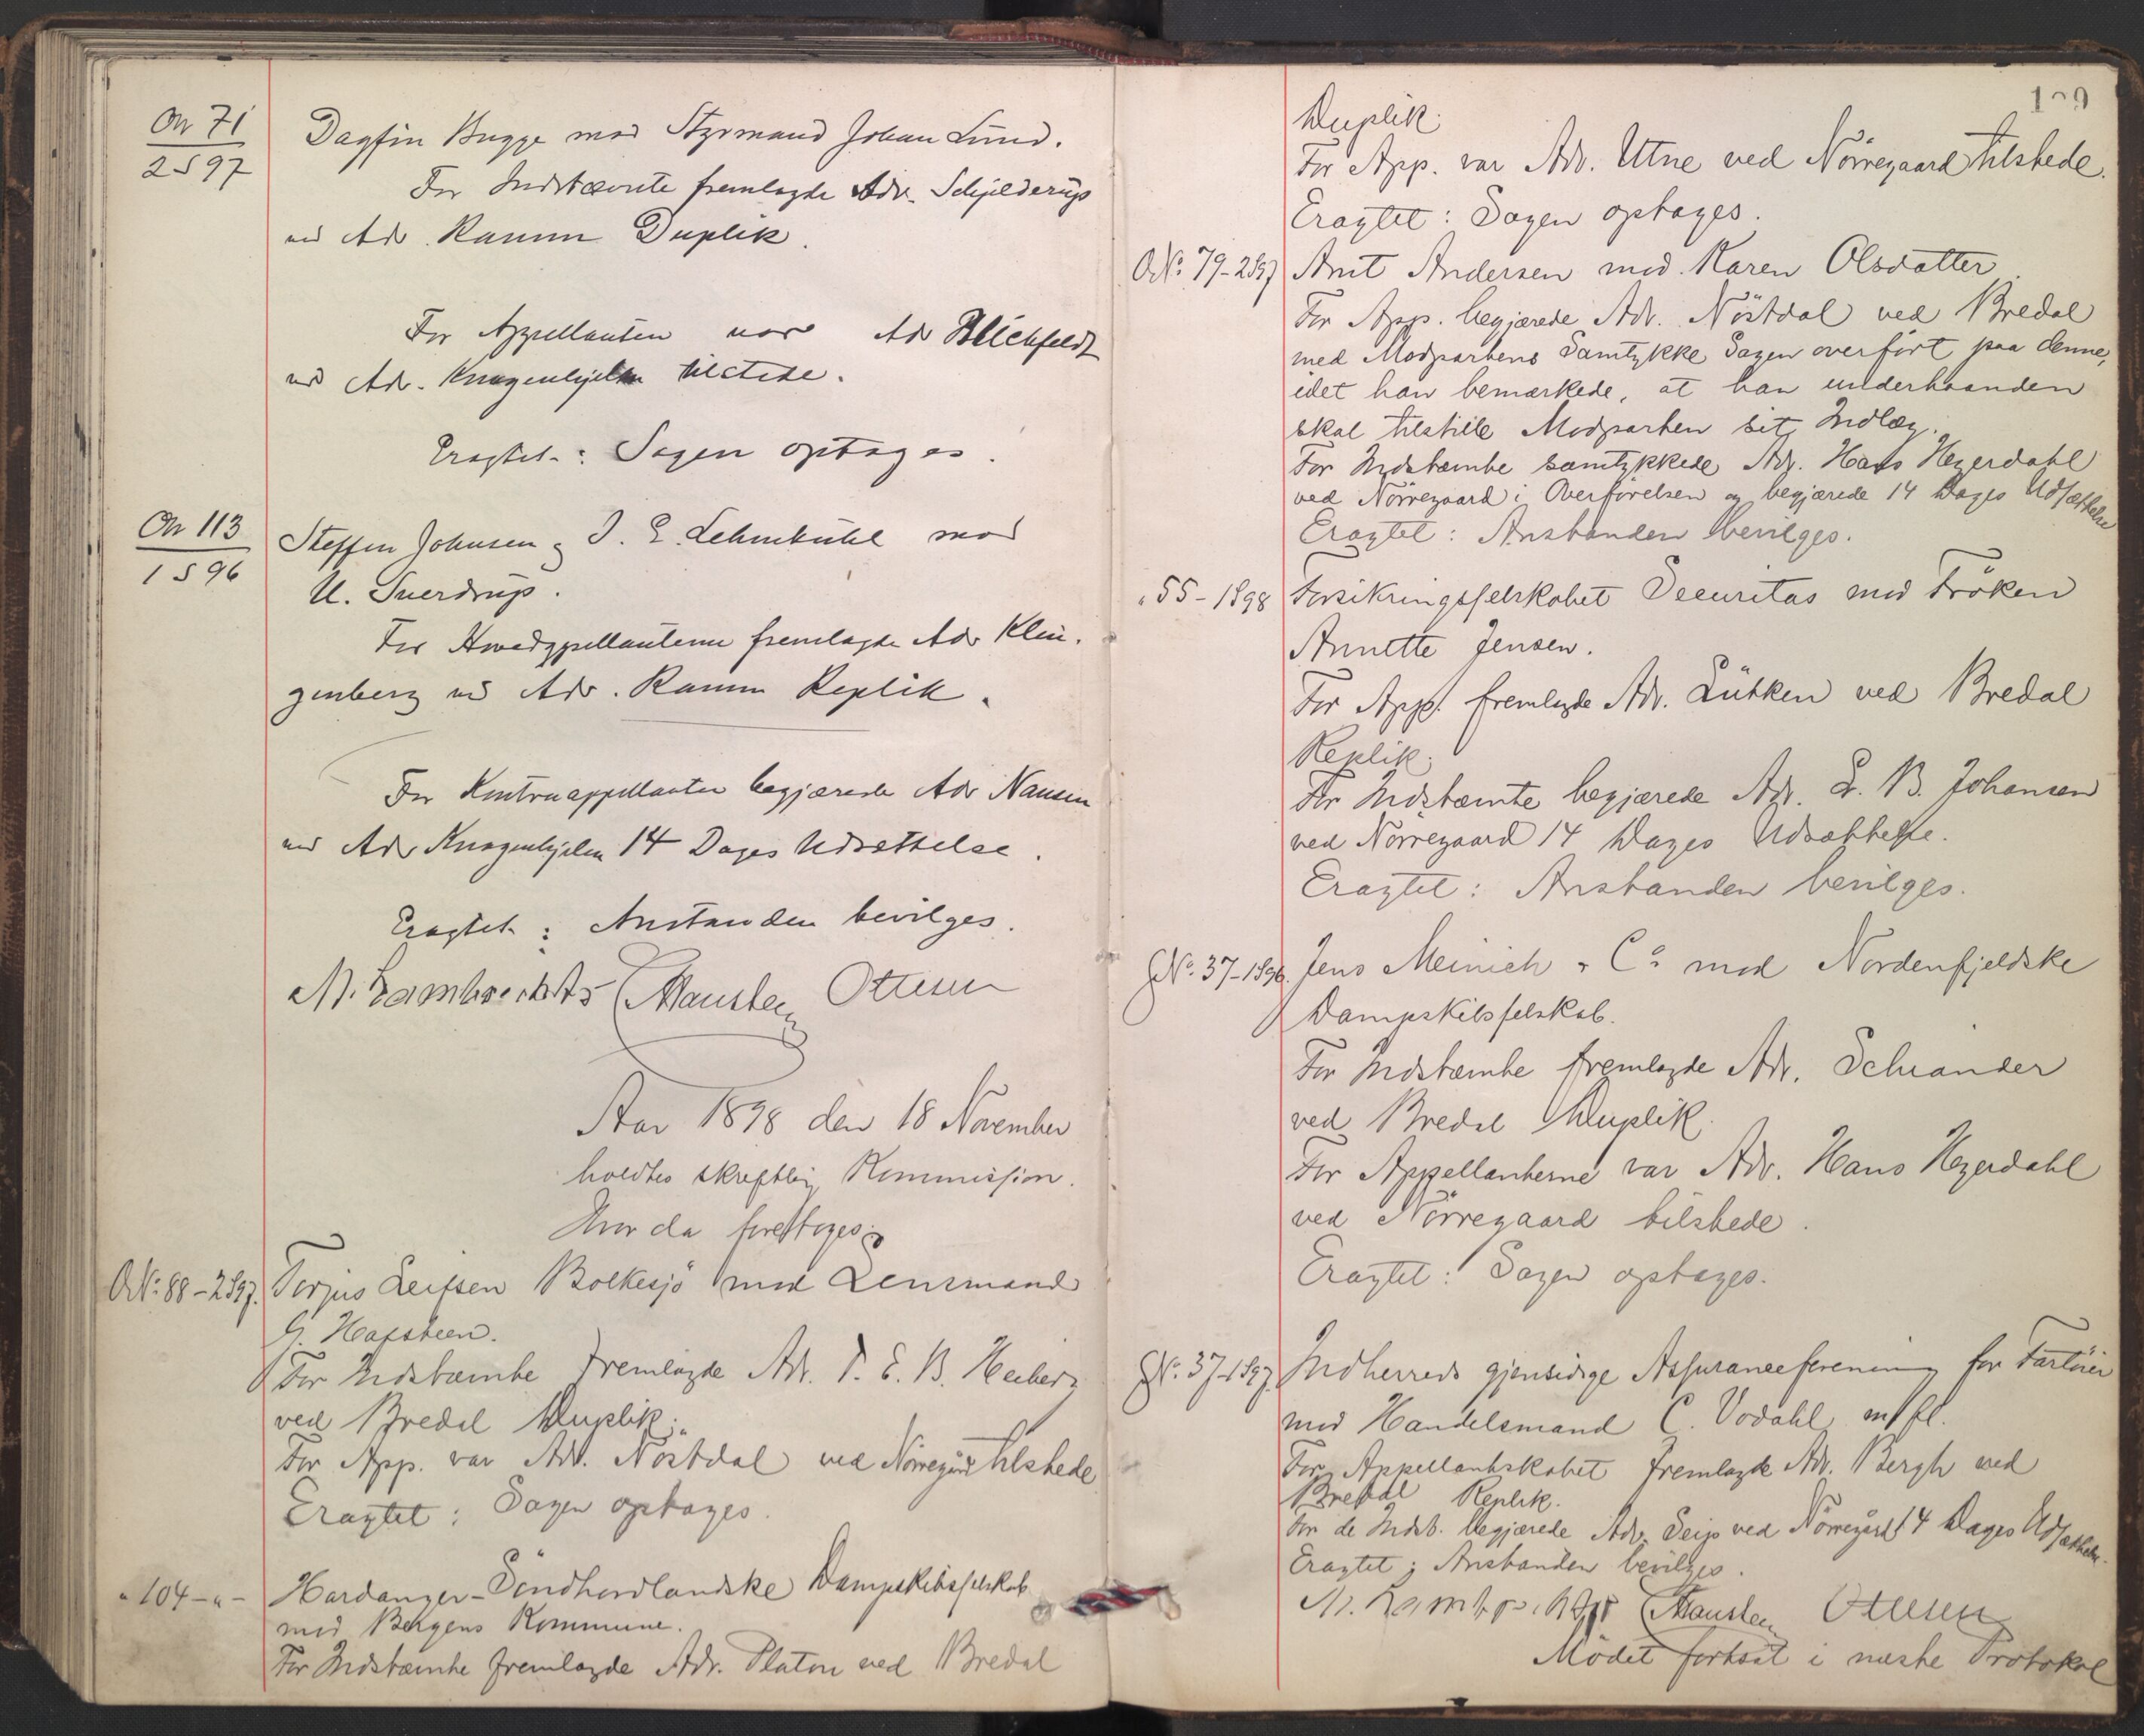 On 71
2 S 97
Dagfin Bugge mod Styrmand Johan Lund.
For Indstævnte fremlagde Adv. Schjelderup
ved Adv. Ramm Duplik.
For Appellanten var Adv Blichfeldt
ved Adv. Knagenhjelm tilstede.
Eragtet: Sagen optages.
On 113
1 S 96
Steffen Johnsen & J. E. Lehmkühl mod
U. Sverdrup.
For Hovedappellanterne fremlagde Adv Klin-
genberg ved Adv. Ramm Replik.
For Kontraappellanten begjærede Adv Nansen
ved Adv Knagenhjelm 14 Dages Udsættelse.
Eragtet: Anstanden bevilges.
M. Lambrechts Mausteen Ottesen
Aar 1898 den 18 November
holdtes skriftlig Kommission.
Hvor da foretoges:
O.No. 88-2S97. Torjus Leifsen Bolkesjö mod Lensmand
G. Hafsteen.
For Indstævnte fremlagde Adv. P. E. B.
ved Bredal Duplik.
For App. var Adv. Nöstdal ved Nörregård tilstede
Eragtet: Sagen optages.
" 104 - " - Hardanger-Söndhordlandske Dampskibsselskab
mod Bergens Kommune.
For Indstævnte fremlagde Adv. Platou ved Bredal
Duplik.
For App. var Adv. Utne ved Nörregaard tilstede.
Eragtet: Sagen optages.
O.No. 79-2S97 Arnt Andersen mod Karen Olsdatter.
For App. begjærede Adv. Nöstdal ved Bredal
med Modpartens Samtykke Sagen overfört paa denne,
idet han bemærkede, at han underhaanden
skal tilstille Modparten sit Indlæg.
For Indstævnte samtykkede Adv. Hans Heyerdahl
ved Nörregaard i Overförelsen og begjærede 14 Dages Udsættelse
Eragtet: Anstanden bevilges.
" 55-1S98 Forsikringsselskabet Securitas mod Fröken
Annette Jensen.
For App. fremlagde Adv. Lütken ved Bredal
Replik.
For Indstævnte begjærede Adv. L. B. Johansen
ved Nörregaard 14 Dages Udsættelse.
Eragtet: Anstanden bevilges.
No. 37-1S96. Jens Meinich & Co. mod Nordenfjeldske
Dampskibsselskab.
For Indstævnte fremlagde Adv. Schiander
ved Bredal Duplik.
For Appellanterne var Adv. Hans Heyerdahl
ved Nörregaard tilstede.
Eragtet: Sagen optages.
No. 37-1S97 Indherreds gjensidige Assuranceforening for Fartöier
mod Handelsmand C. Vodahl m/fl.
For Appellantskabet fremlagde Adv. Bergh ved
Bredal Replik.
For de Indst. begjærede Adv. Seip ved Nörregård 14 Dages Udsættelse.
Eragtet: Anstanden bevilges.
M. Lambrechts Mausteen Ottesen
Mödet fortsat i næste Protokol